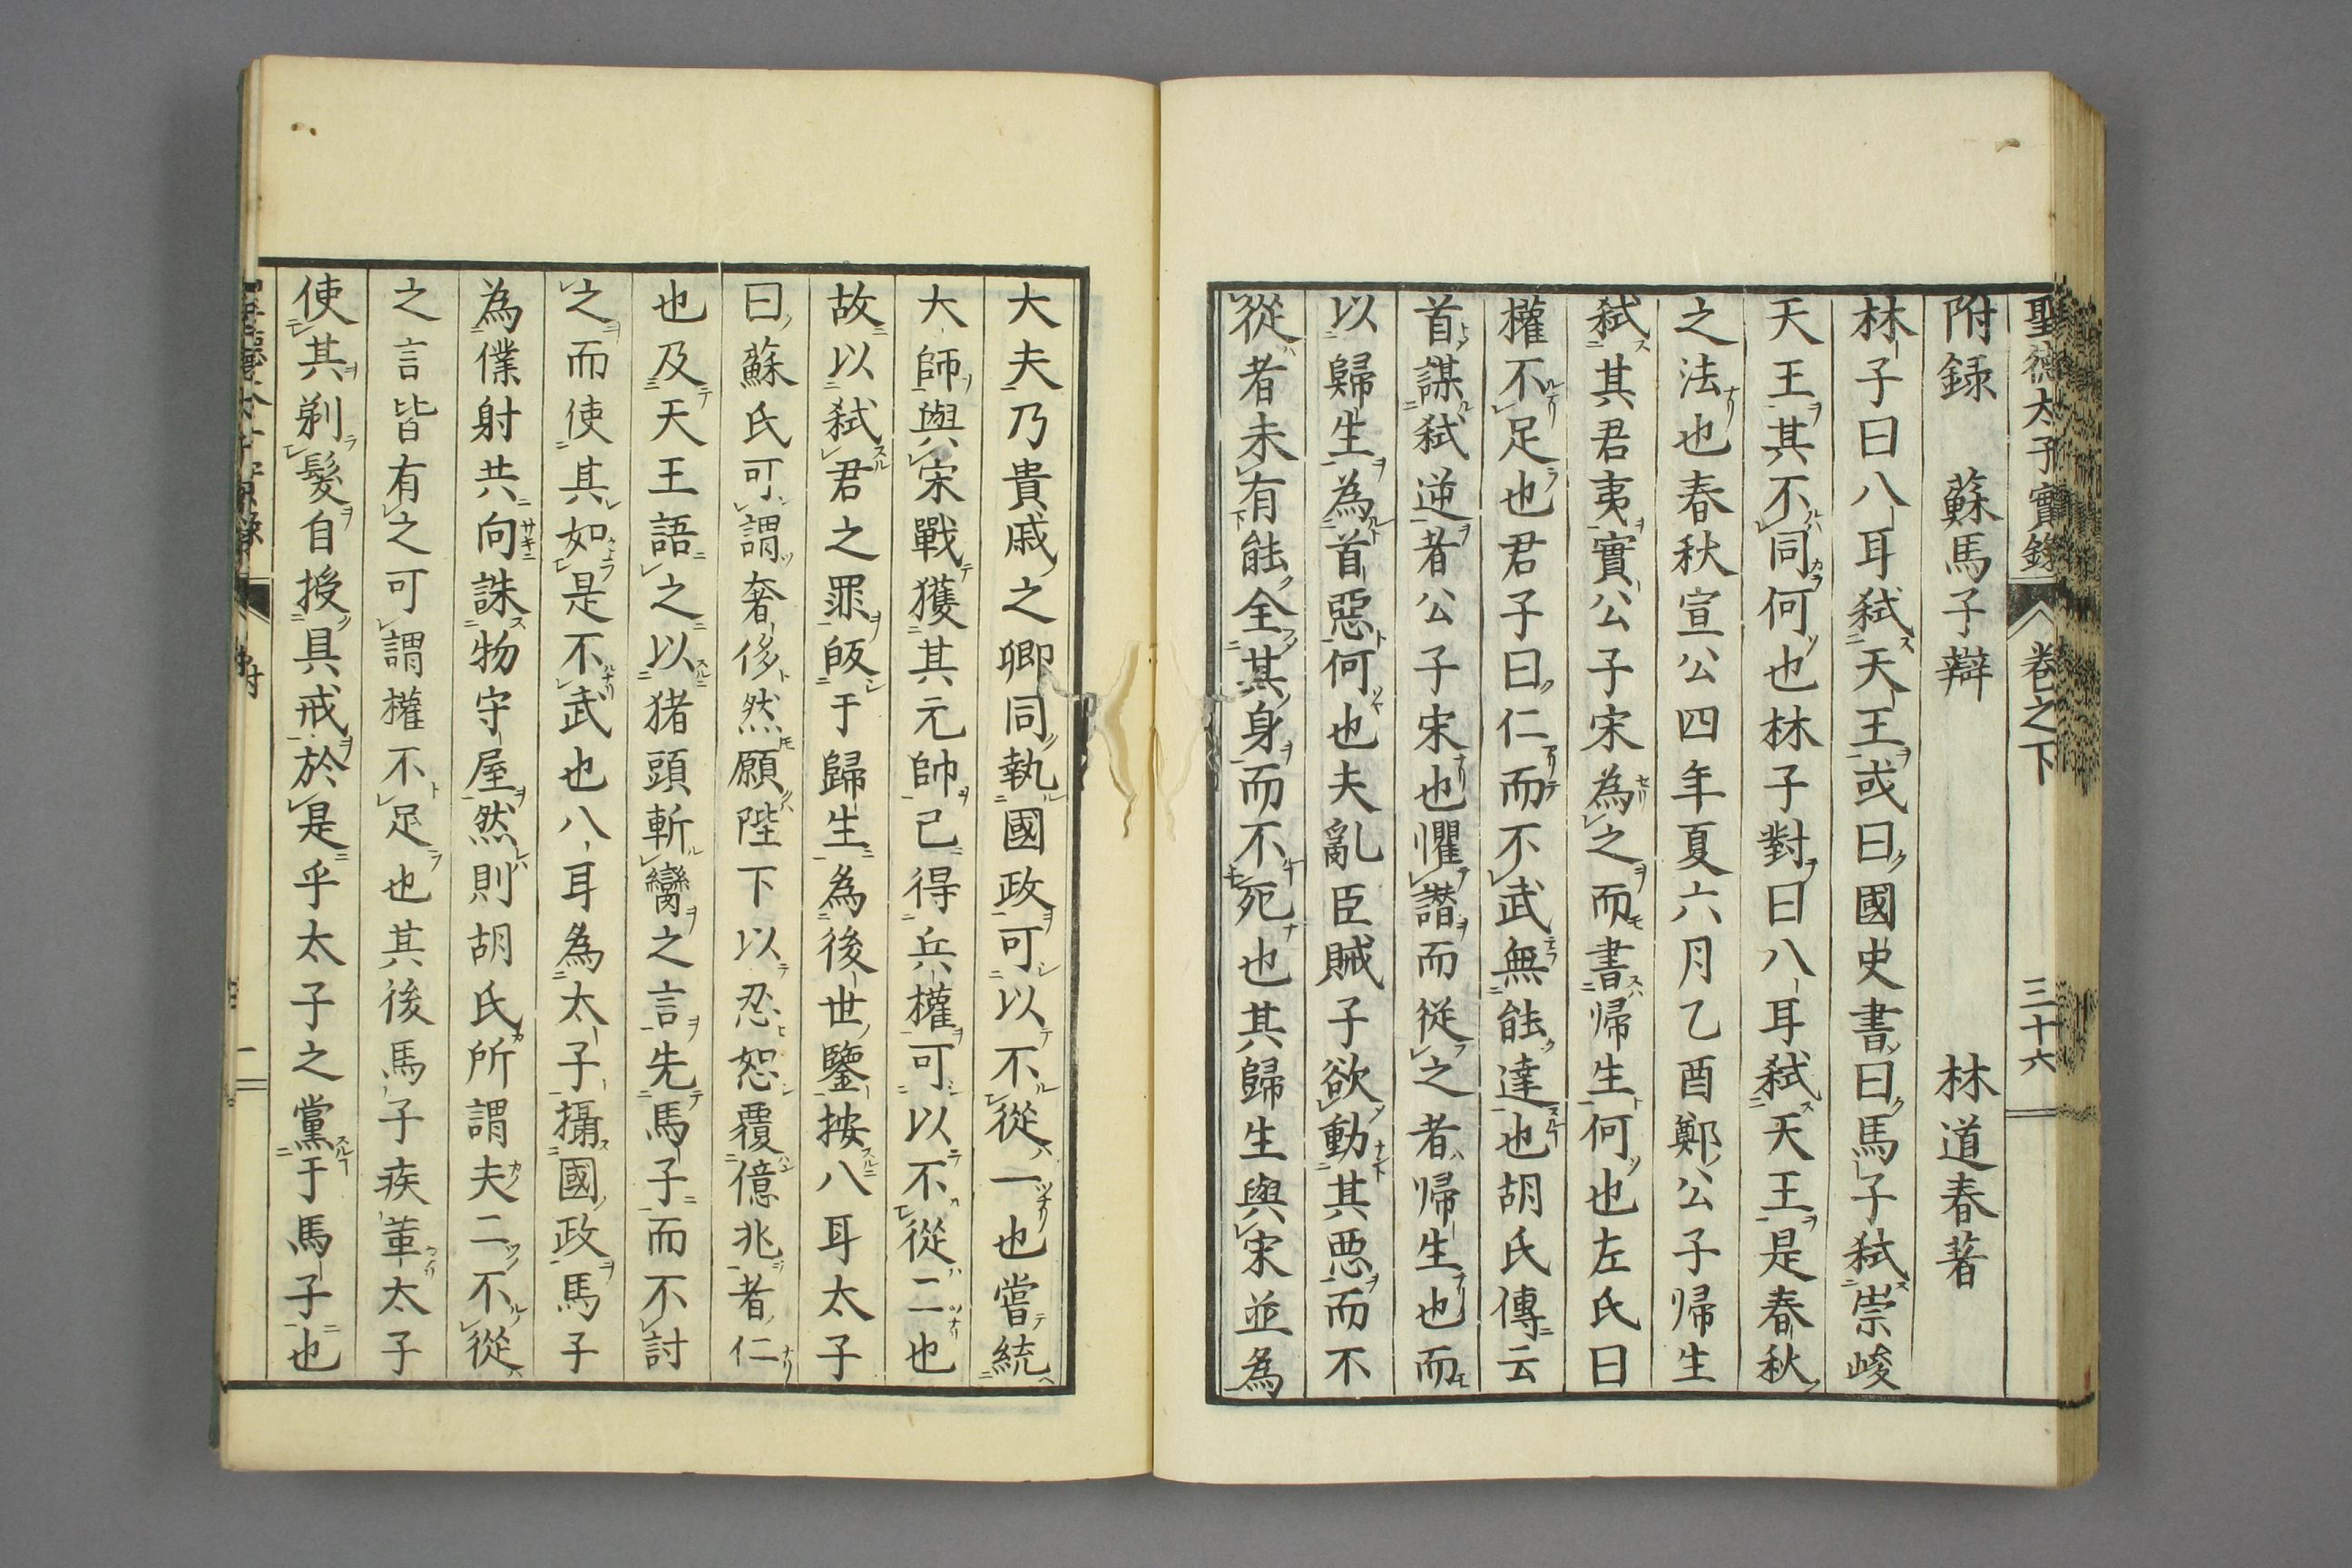 聖徳太子實録 巻之下 三十六
附録 蘇馬子辯 林道春著
林子曰八耳弑天王或曰國史書曰馬子弑崇峻
天王其不同何也林子對曰八耳弑天王是春秋
之法也春秋宣公四年夏六月乙酉鄭公子帰生
弑其君夷實公子宋為之而書帰生何也左氏曰
權不足也君子曰仁而不武無能達也胡氏傳云
首謀弑逆者公子宋也懼譖而從之者帰生也而
以歸生為首惡何也夫亂臣賊子欲動其悪而不
從者未有能全其身而不死也其歸生與宋並為
大夫乃貴戚之卿同執國政可以不從一也嘗統
大師與宋戰獲其元帥已得兵權可以不從二也
故以弑君之罪皈于歸生為後世鑒按八耳太子
曰蘇氏可謂奢侈然願陛下以忍恕覆億兆者仁
也及天王語之以猪頭斬臠之言先馬子而不討
之而使其如是不武也八耳為太子攝國政馬子
為僕射共向誅物守屋然則胡氏所謂夫二不從
之言皆有之可謂權不足也其後馬子疾革太子
使其剃髪自授具戒於是乎太子之黨于馬子也